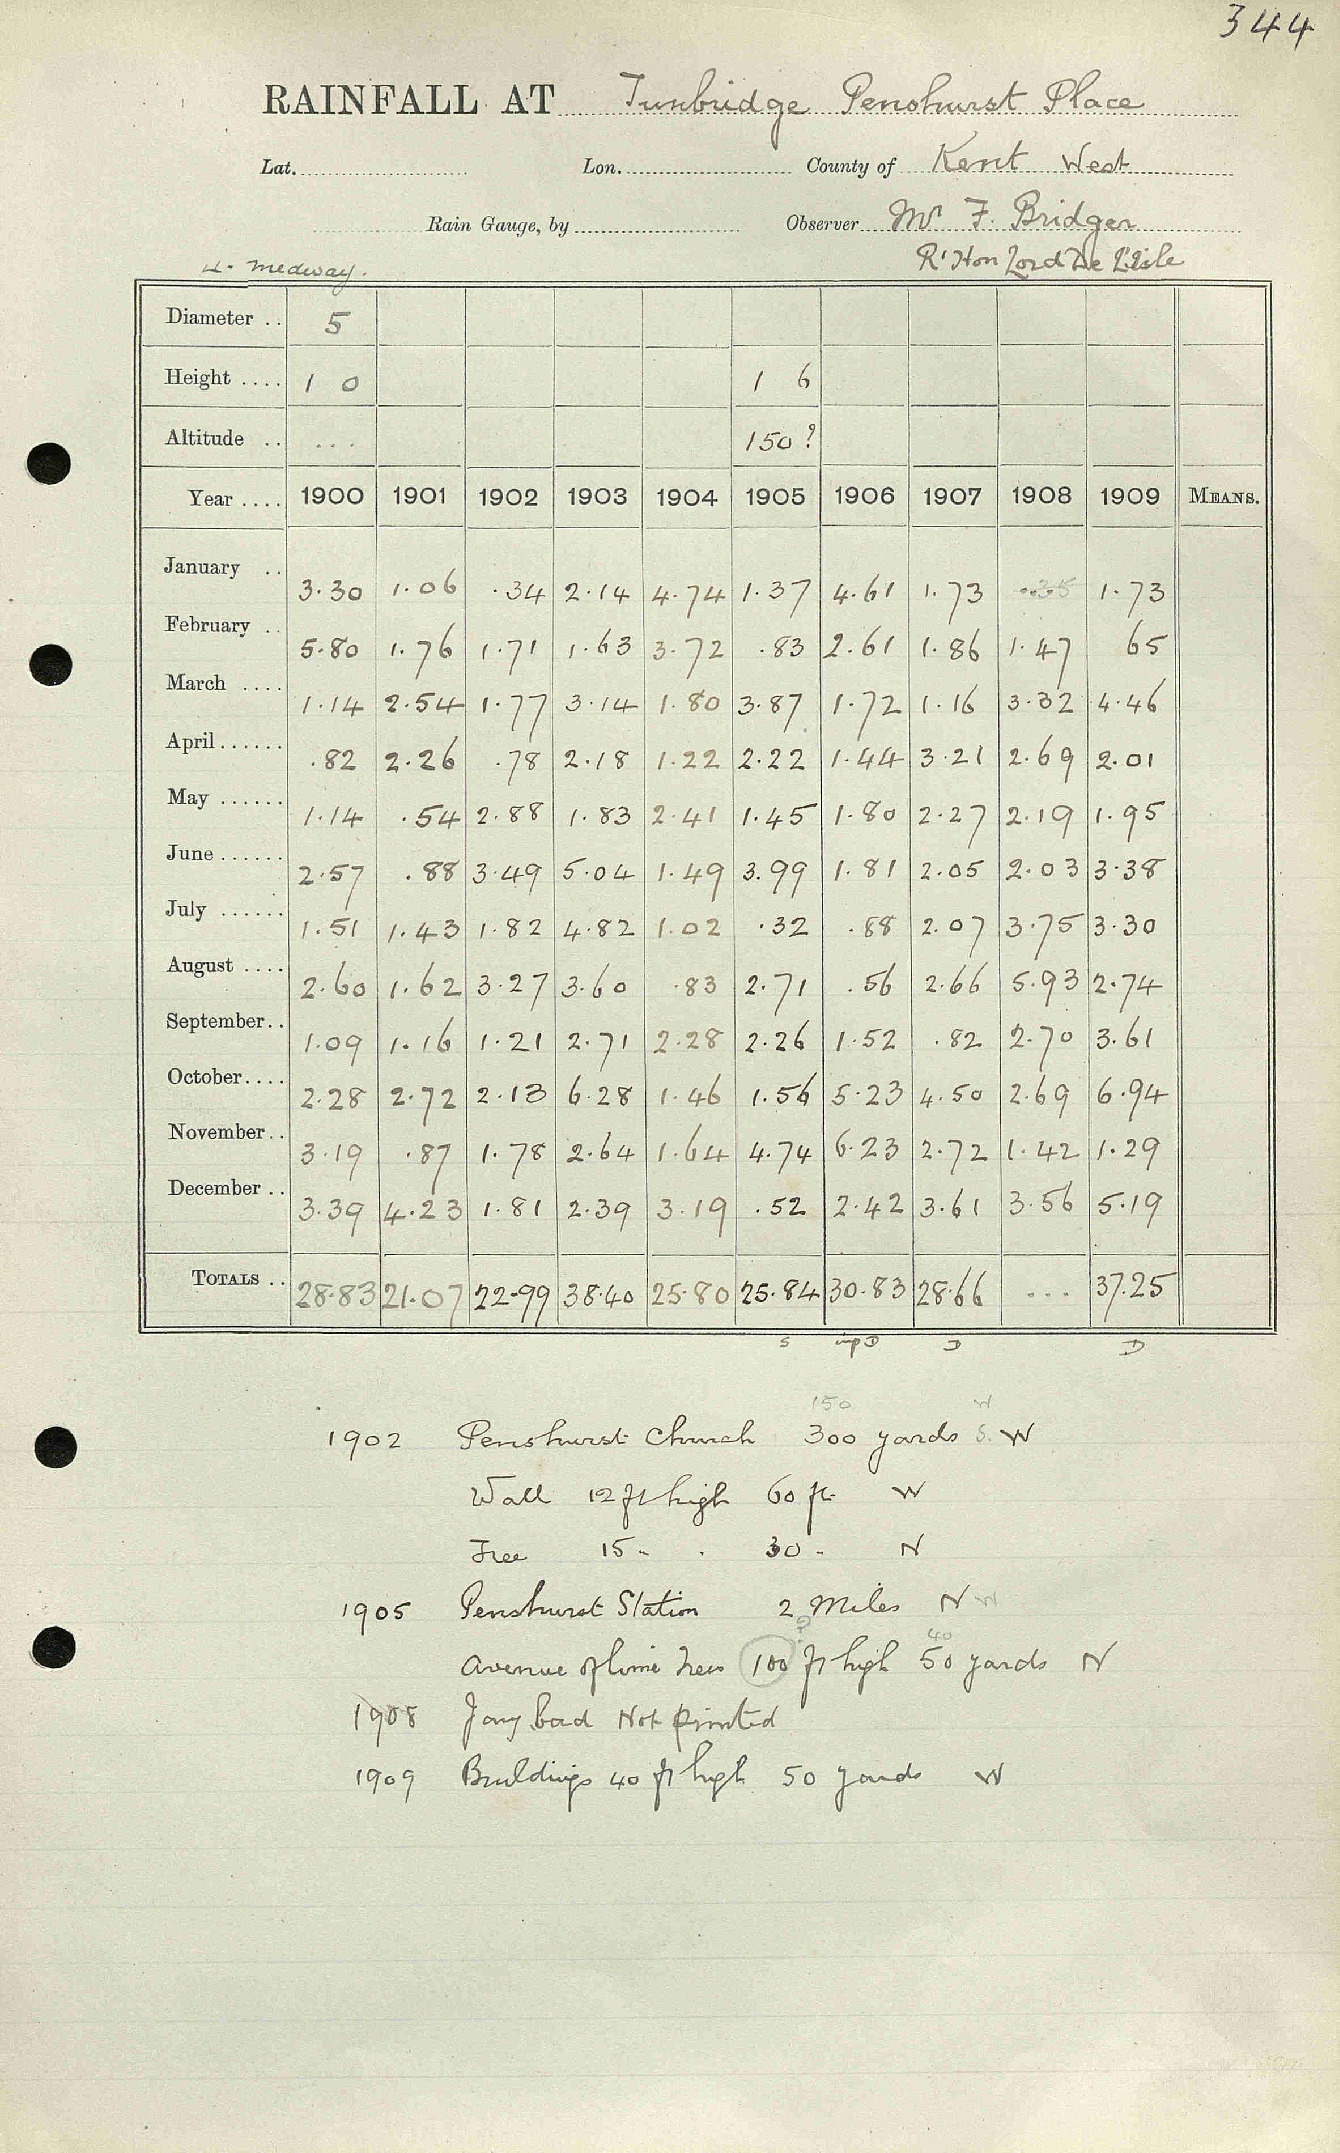 344
RAINFALL AT Tunbridge Penshurst Place
Lat. Lon. County of Kent West
Rain Gauge, by Observer Mr F. Bridger
Rt Hon Lord De L'Isle
Medway.
Diameter .. 5
Height .... 1 0 1 6
Altitude .. ... 150 ?
Year .... 1900 1901 1902 1903 1904 1905 1906 1907 1908 1909 MEANS.
January .. 3.30 1.06 .34 2.14 4.74 1.37 4.61 1.73 1.73
February .. 5.80 1.76 1.71 1.63 3.72 .83 2.61 1.86 1.47 65
March .... 1.14 2.54 1.77 3.14 1.80 3.87 1.72 1.16 3.32 4.46
April ...... .82 2.26 .78 2.18 1.22 2.22 1.44 3.21 2.69 2.01
May ...... 1.14 .54 2.88 1.83 2.41 1.45 1.80 2.27 2.19 1.95
June ...... 2.57 .88 3.49 5.04 1.49 3.99 1.81 2.05 2.03 3.38
July ...... 1.51 1.43 1.82 4.82 1.02 .32 .88 2.07 3.75 3.30
August .... 2.60 1.62 3.27 3.60 .83 2.71 .56 2.66 5.93 2.74
September.. 1.09 1.16 1.21 2.71 2.28 2.26 1.52 .82 2.70 3.61
October.... 2.28 2.72 2.13 6.28 1.46 1.56 5.23 4.50 2.69 6.94
November.. 3.19 .87 1.78 2.64 1.64 4.74 6.23 2.72 1.42 1.29
December .. 3.39 4.23 1.81 2.39 3.19 .52 2.42 3.61 3.56 5.19
TOTALS .. 28.83 21.07 22.99 38.40 25.80 25.84 30.83 28.66 ... 37.25
S D D D
150 W
1902 Penshurst Church 300 yards S. W
Wall 12 ft high 60 ft. W
Tree 15 " . 30 " N
1905 Penshurst Station 2 Miles N W
? 40
Avenue of lime trees 100 ft high 50 yards N
1908 Jany bad Not printed
1909 Buildings 40 ft high 50 yards W